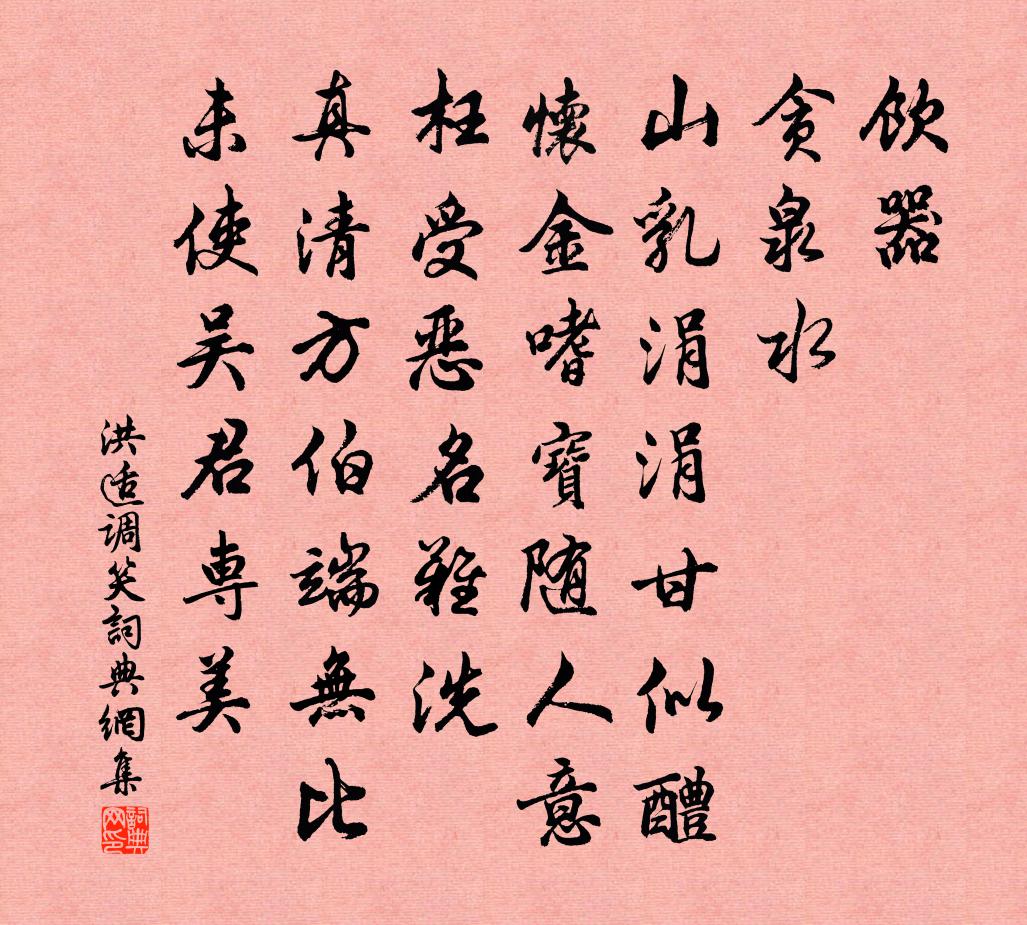 饮器
贪泉水
山乳涓涓甘似醴
懷金嗜寶随人意
枉受恶名難洗
真清方伯端無比
未使吴君専美
洪适調笑詞典網集
詞典网印